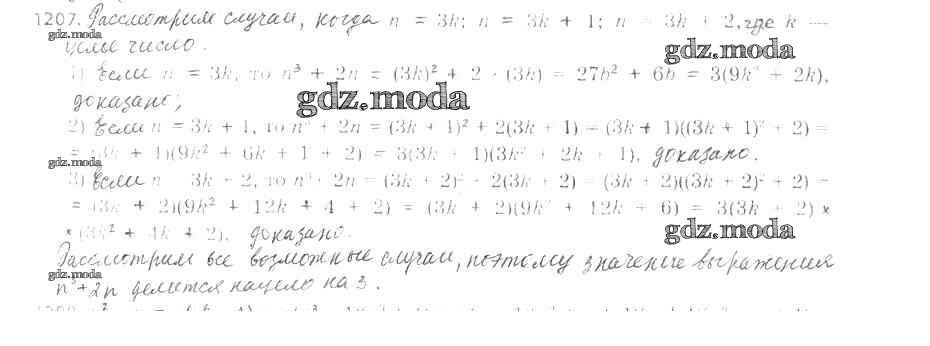 1207. Рассмотрим случаи, когда n = 3k; n = 3k + 1; n = 3k + 2, где k —
gdz.moda
целые число.
gdz.moda
1) Если n = 3k, то n³ + 2n = (3k)² + 2 · (3k) = 27b² + 6b = 3(9k² + 2k),
доказано;
gdz.moda
2) Если n = 3k + 1, то n³ + 2n = (3k + 1)² + 2(3k + 1) = (3k + 1)((3k + 1)² + 2) =
= (3k + 1)(9k² + 6k + 1 + 2) = 3(3k + 1)(3k² + 2k + 1), доказано.
gdz.moda
3) Если n = 3k + 2, то n³ + 2n = (3k + 2)² + 2(3k + 2) = (3k + 2)((3k + 2)² + 2) =
= (3k + 2)(9k² + 12k + 4 + 2) = (3k + 2)(9k² + 12k + 6) = 3(3k + 2) ×
× (3k² + 4k + 2), доказано.
gdz.moda
Рассмотрим все возможные случаи, поэтому значение выражения
gdz.moda
n³+2n делится нацело на 3.